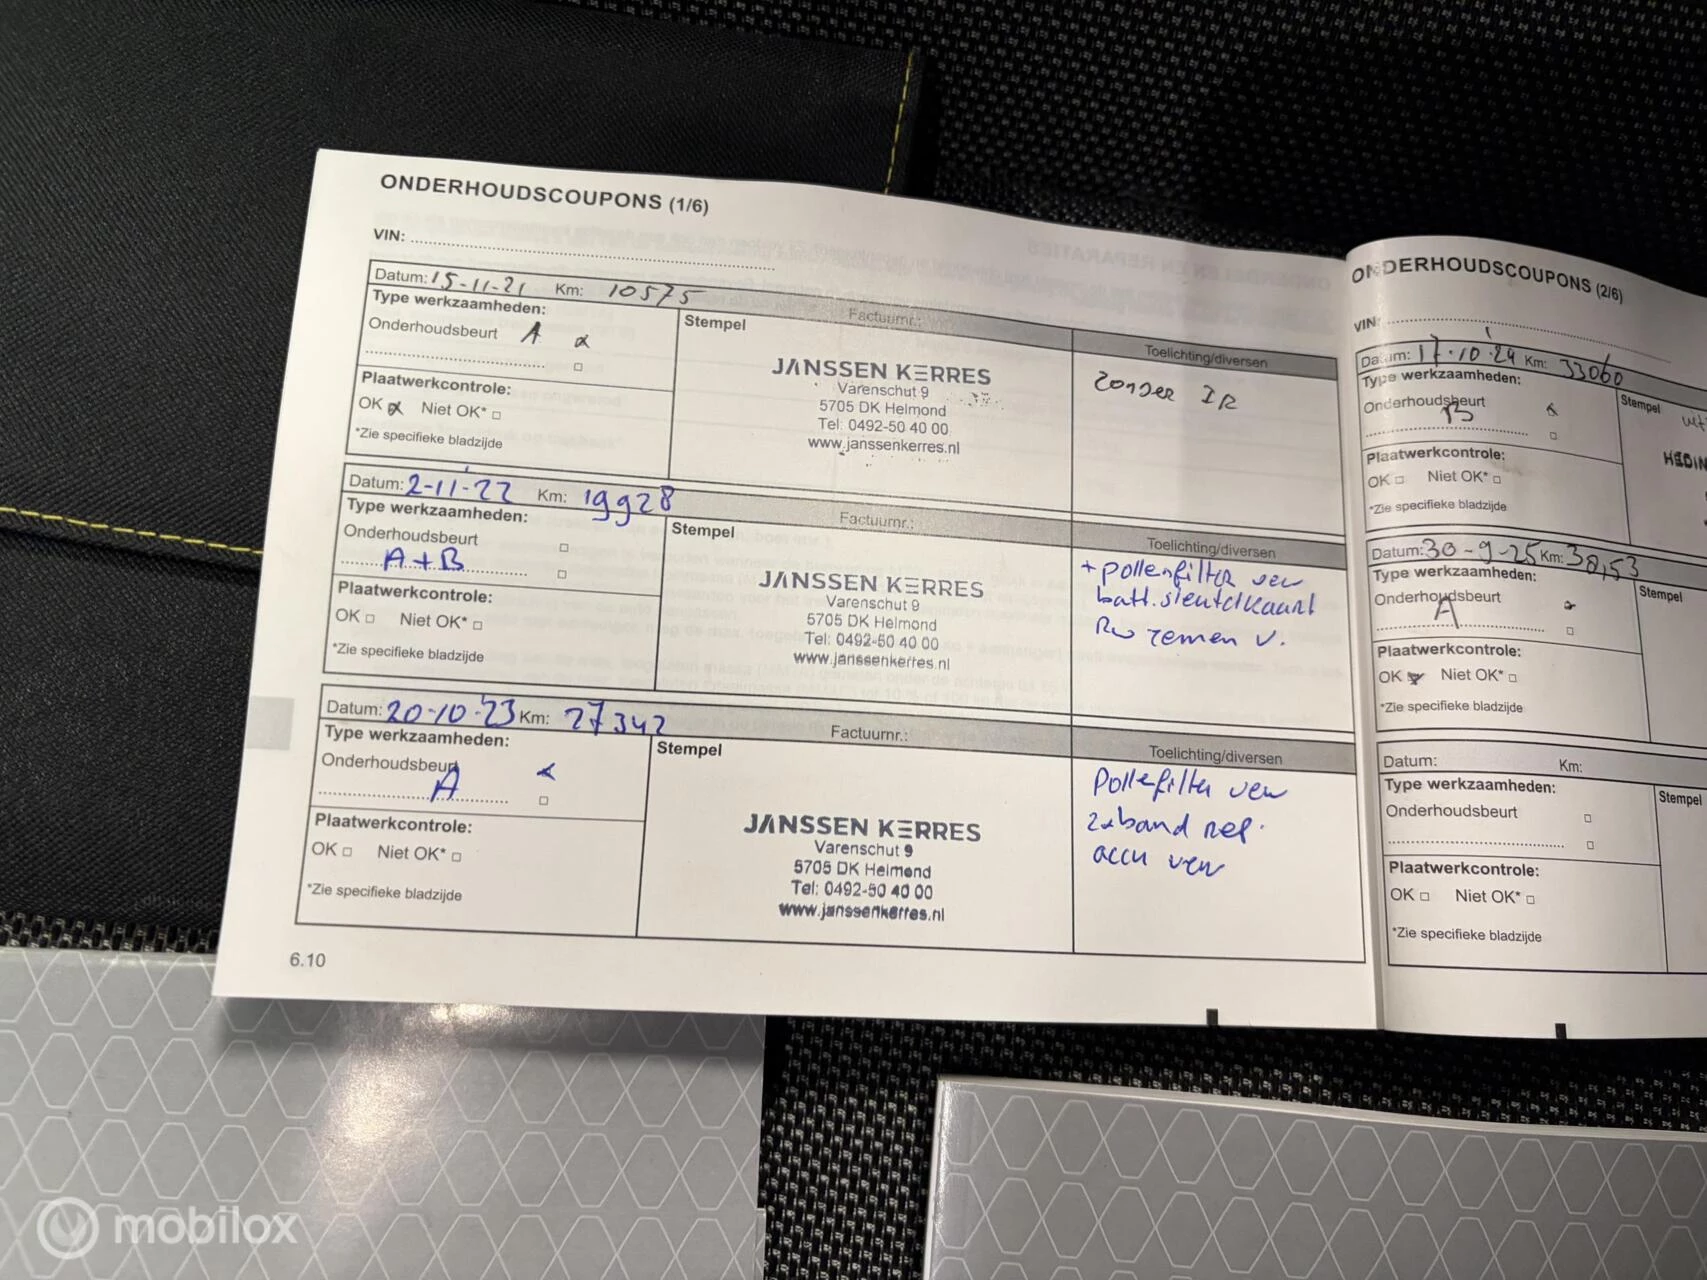 ONDERHOUDSCOUPONS (1/6)
VIN:
Datum: 15-11-21 Km: 10575
Type werkzaamheden:
Factuurnr.:
Onderhoudsbeurt A
Stempel
Toelichting/diversen
JANSSEN KERRES
Varenschut 9
5705 DK Helmond
Tel: 0492-50 40 00
www.janssenkerres.nl
zonder IR
Plaatwerkcontrole:
OK Niet OK*
*Zie specifieke bladzijde
Datum: 2-11-22 Km: 19928
Type werkzaamheden:
Factuurnr.:
Onderhoudsbeurt
A+B
Stempel
Toelichting/diversen
JANSSEN KERRES
Varenschut 9
5705 DK Helmond
Tel: 0492-50 40 00
www.janssenkerres.nl
+ pollenfilter verv
batt. sleutelkaart
remen v.
Plaatwerkcontrole:
OK Niet OK*
*Zie specifieke bladzijde
Datum: 20-10-'23 Km: 27342
Type werkzaamheden:
Factuurnr.:
Onderhoudsbeurt
A
Stempel
Toelichting/diversen
JANSSEN KERRES
Varenschut 9
5705 DK Helmond
Tel: 0492-50 40 00
www.janssenkerres.nl
Pollefilter verv
2x band rep.
accu verv
Plaatwerkcontrole:
OK Niet OK*
*Zie specifieke bladzijde
6.10
ONDERHOUDSCOUPONS (2/6)
VIN:
Datum: 17-10-'24 Km: 33060
Type werkzaamheden:
Onderhoudsbeurt
B
Stempel
HEDIN
Plaatwerkcontrole:
OK Niet OK*
*Zie specifieke bladzijde
Datum: 30-9-25 Km: 38,53
Type werkzaamheden:
Onderhoudsbeurt
A
Stempel
Plaatwerkcontrole:
OK Niet OK*
*Zie specifieke bladzijde
Datum: Km:
Type werkzaamheden:
Onderhoudsbeurt
Stempel
Plaatwerkcontrole:
OK Niet OK*
*Zie specifieke bladzijde
mobilox